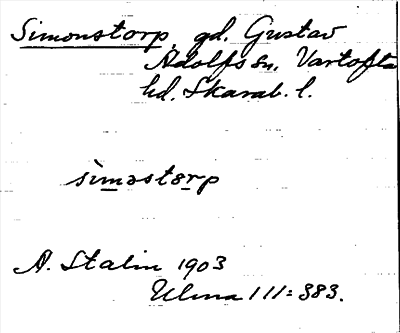 Simonstorp, gd. Gustav
Adolfs sn, Vartofta
hd. Skarab. l.
sìməstɵrp
A. Stalin 1903
Ulma 111:383.